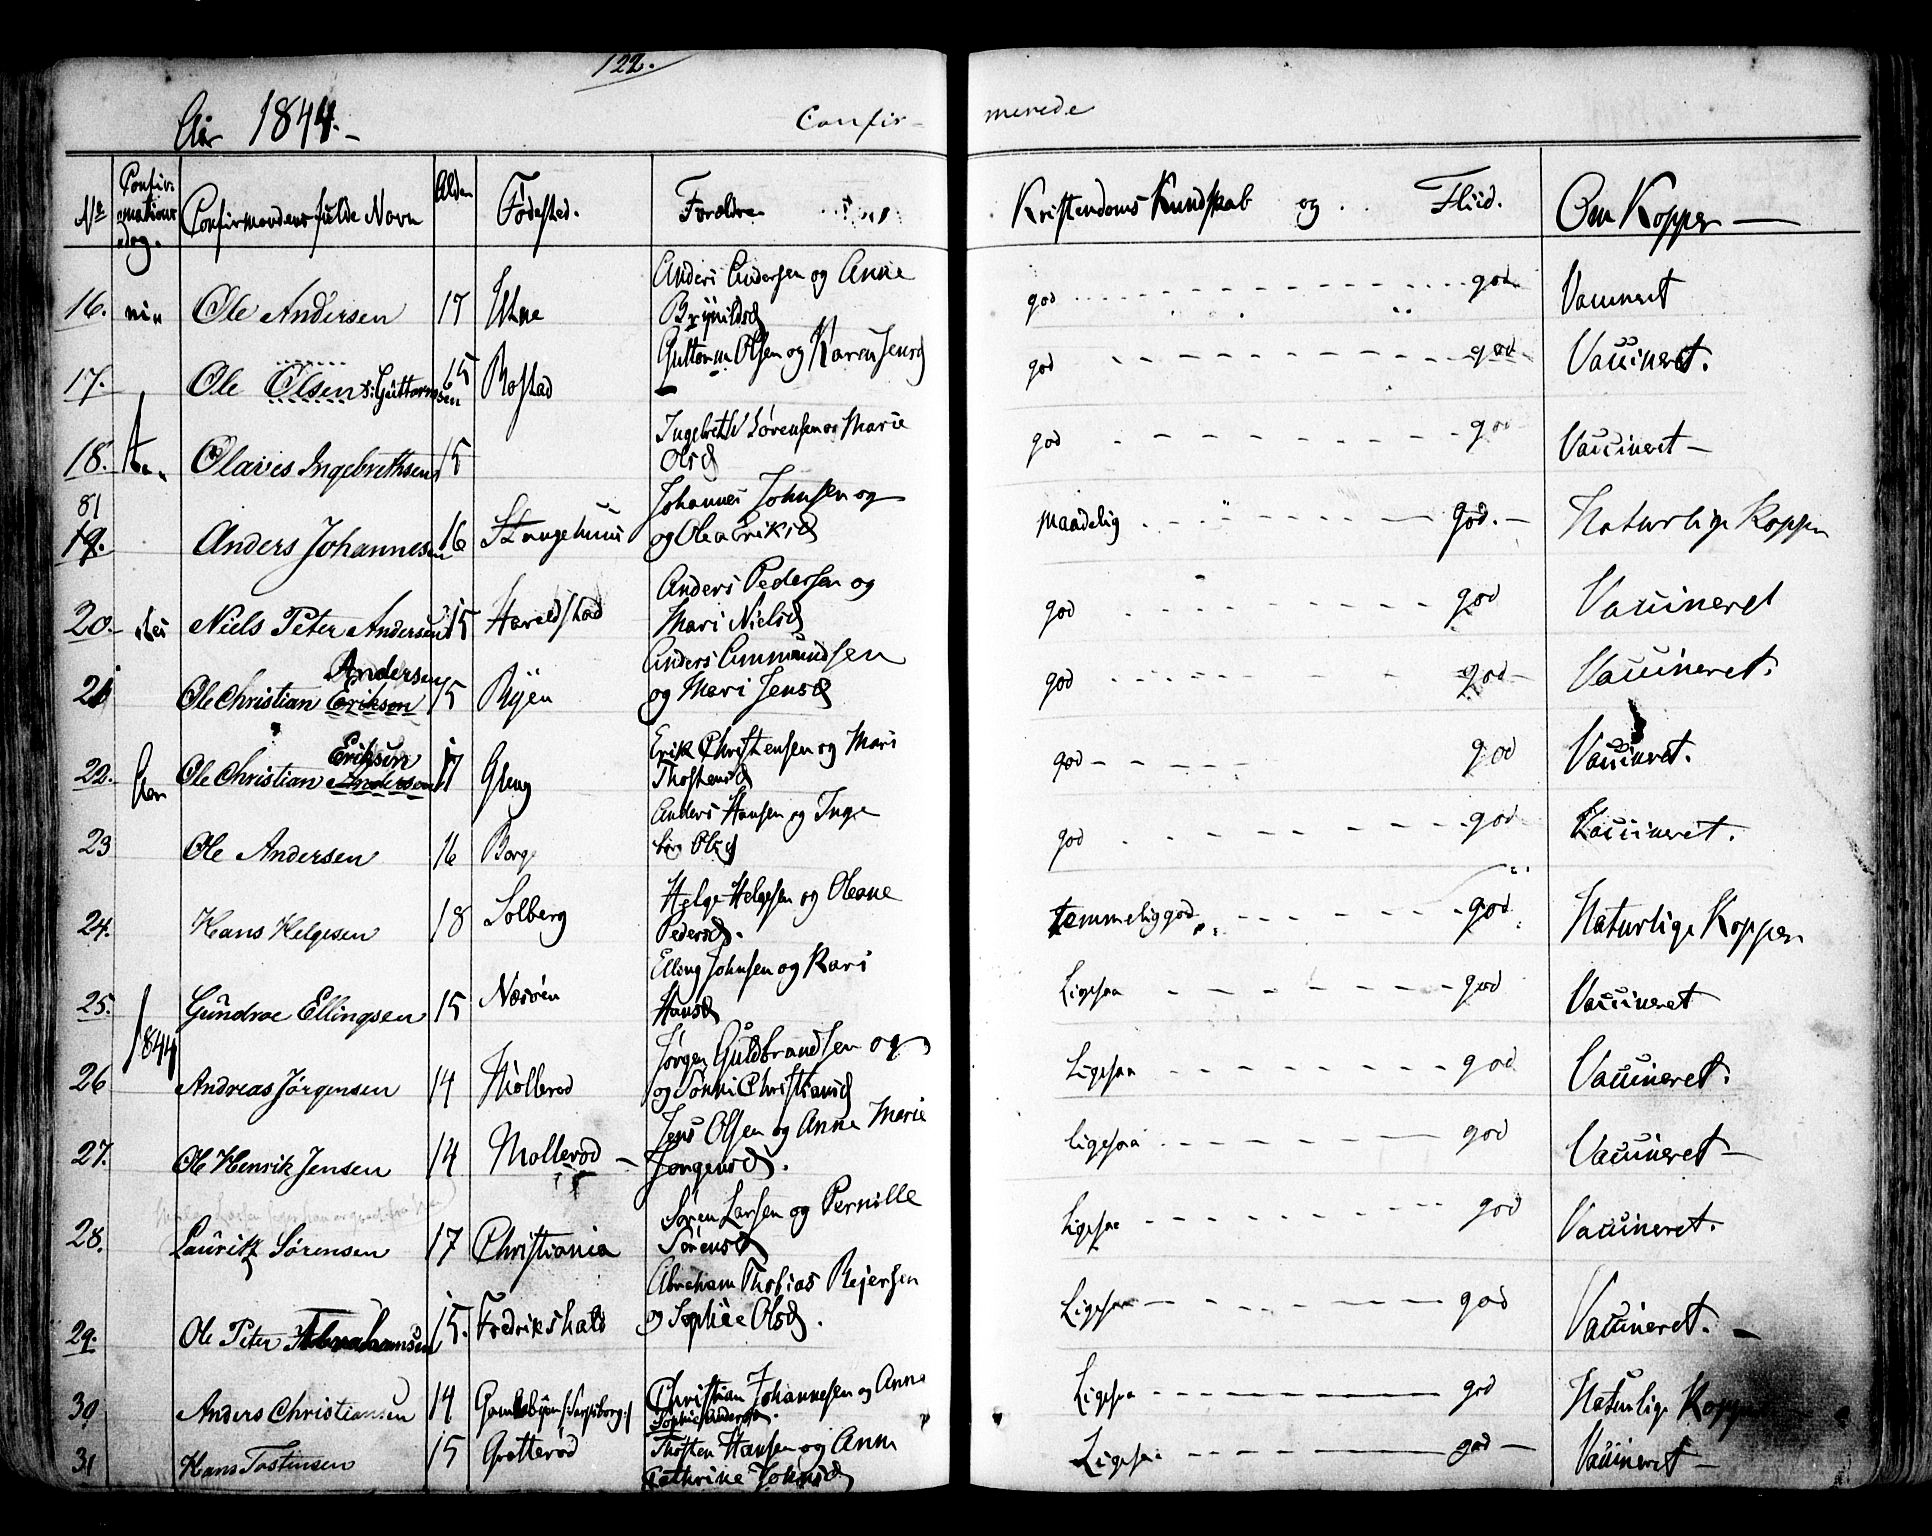 122.
Aar 1844.
Confirmerede
No Confirmations dag. Confirmandens fulde Navn Alder Fødested. Forældre Kristendoms Kundskab og Fliid. Om Kopper
16. Ole Andersen 17 Anders Andersen og Anne Brynildsd god god Vaccineret
17. Ole Olsen s: Guttormsen 15 Rostad Guttorm Olsen og Karen Jensd god god Vaccineret.
18. Olaves Ingebrethsen 15 Ingebreth Sørensen og Marie Olsd god god Vaccineret
81
19. Anders Johannesen 16 Johannes Johnsen og og Olea Eriksd maadelig god. Naturlige Kopper
20. Niels Peter Andersen 15 Haraldstad Anders Pedersen og Mari Nielsd god god Vaccineret
21 Ole Christian Eriksen Andersen 15 Ryen Anders Ammundsen og Mari Jensd god god Vaccineret.
22. Ole Christian Andersen Eriksen 17 Gleng Erik Christensen og Mari Thostensd god god Vaccineret.
23 Ole Andersen 16 Borge Anders Hansen og Inge borg Olsd god god Vaccineret.
24. Hans Helgesen 18 Solberg Helge Helgesen og Oleane Pedersd. temmelig god god Naturlige Kopper
25. Gundroe Ellingsen 15 Næsøen Elling Johnsen og Kari Hansd Ligesaa god Vaccineret
1844
26 Andreas Jørgensen 14 Møllerød Jørgen Guldbrandsen og og Christiansd Ligesaa god Vaccineret.
27. Ole Henrik Jensen 14 Møllerød Jens Olsen og Anne Marie Jørgensd. ligesaa god Vaccineret
28. Lauritz Sørensen 17 Christiania Søren Larsen og Pernille Sørensd Ligesaa god Vaccineret.
29. Ole Peter Abrahamsen 15. Fredrikshald Abraham Thobias Rejersen og Sophie Olsd. Ligesaa god Vaccineret.
30 Anders Christiansen 14 Gamlebyen /:Sarpsborg:/ Christian Johannesen og Anne Sophie Andersd. Ligesaa god Naturlige Kopper
31 Hans Tostensen 15 Grotterød Thosten Hansen og Anne Cathrine Johnsd Ligesaa god Vaccineret